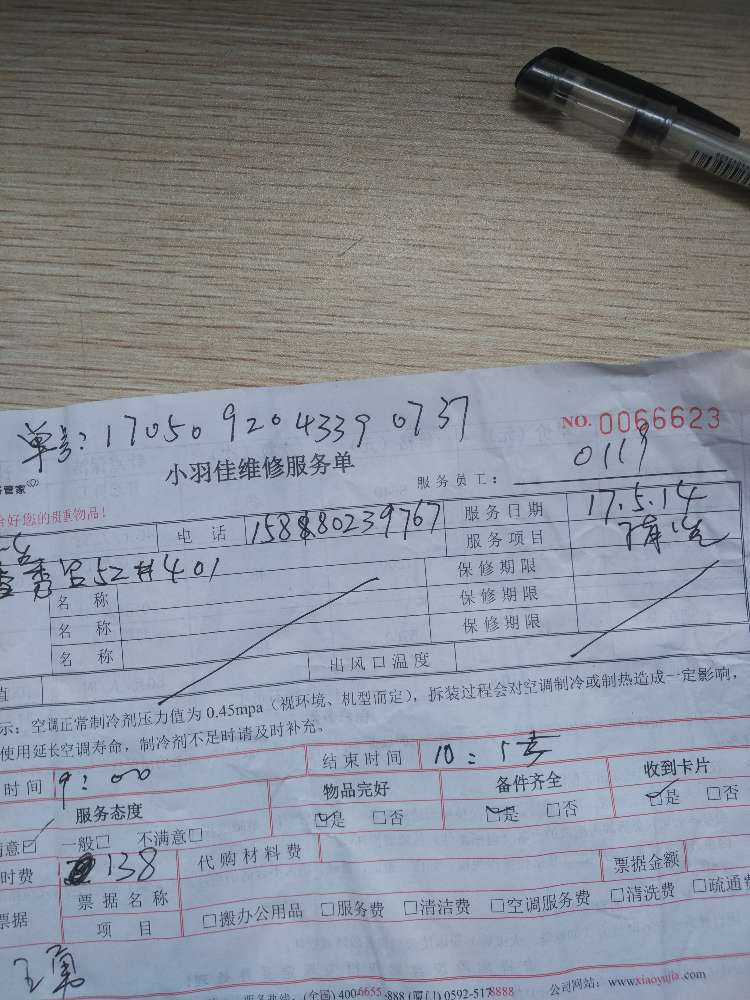 单号：170509204339 0737
NO. 0066623
小羽佳维修服务单
管家
服务员工： 0119
好您的贵重物品！
电 话 15880239767 服务日期 17.5.14
服务项目
52#401
保修期限
名 称 保修期限
名 称 保修期限
名 称 出风口温度
值
示：空调正常制冷剂压力值为 0.45mpa（视环境、机型而定），拆装过程会对空调制冷或制热造成一定影响，
使用延长空调寿命，制冷剂不足时请及时补充。
时间 9：00 结束时间 10：
服务态度 物品完好 备件齐全 收到卡片
满意☑ 一般□ 不满意□ ☑是 □否 ☑是 □否 ☑是 □否
时费 138 代购材料费 票据金额
票据 票据名称
项 目 □搬办公用品 □服务费 □清洁费 □空调服务费 □清洗费 □疏通费
服务热线：(全国) 400-6655-888 (厦门) 0592-5178888 公司网站：www.xiaoyujia.com